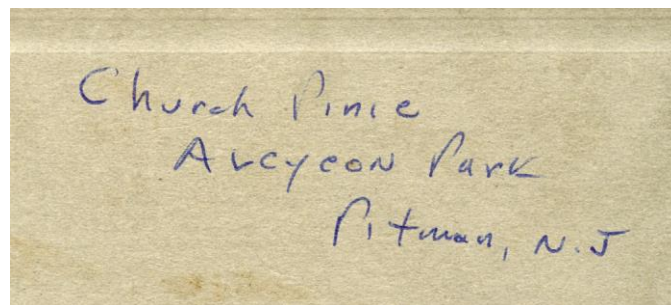 Church Pinic
Alcyeon Park
Pitman, N.J